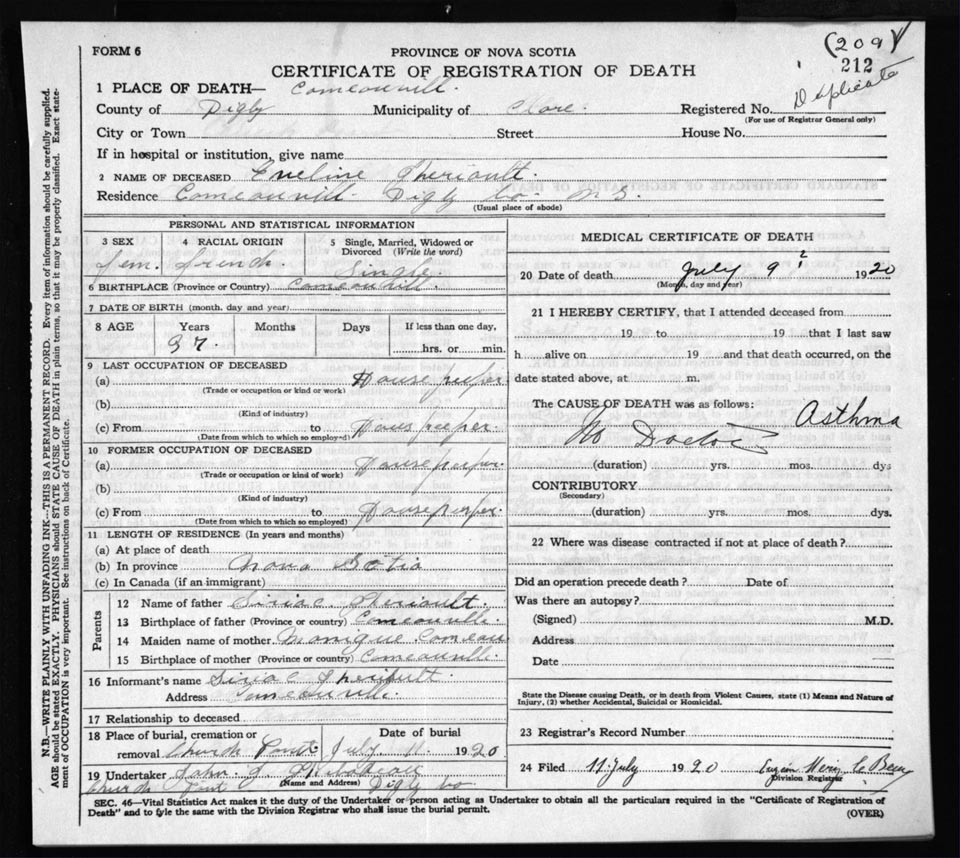 (209)
FORM 6
PROVINCE OF NOVA SCOTIA
212
CERTIFICATE OF REGISTRATION OF DEATH
Duplicate
1 PLACE OF DEATH— Comeauvill.
County of Digby Municipality of Clare. Registered No.
(For use of Registrar General only)
City or Town Street House No.
If in hospital or institution, give name
2 NAME OF DECEASED Eveline Theriault.
Residence Comeauvill Digby Co. N S.
(Usual place of abode)
PERSONAL AND STATISTICAL INFORMATION
3 SEX 4 RACIAL ORIGIN 5 Single, Married, Widowed or Divorced (Write the word)
fem. french. Single
6 BIRTHPLACE (Province or Country) Comeauvill.
7 DATE OF BIRTH (month. day and year)
8 AGE Years Months Days If less than one day,
37. hrs. or min.
9 LAST OCCUPATION OF DECEASED
(a) House
(Trade or occupation or kind or work)
(b)
(Kind of industry)
(c) From to
(Date from which to which so employed)
10 FORMER OCCUPATION OF DECEASED
(a)
(Trade or occupation or kind of work)
(b)
(Kind of industry)
(c) From to
(Date from which to which so employed)
11 LENGTH OF RESIDENCE (In years and months)
(a) At place of death
(b) In province Nova Scotia
(c) In Canada (if an immigrant)
Parents
12 Name of father Siriac Theriault.
13 Birthplace of father (Province or country) Comeauville.
14 Maiden name of mother Monique Comeau
15 Birthplace of mother (Province or country) Comeauville.
16 Informant's name Siriac Theriault
Address Comeauvill.
17 Relationship to deceased
18 Place of burial, cremation or removal Date of burial
Church Point July 11 1920
19 Undertaker John
(Name and Address)
Church Point Digby Co
MEDICAL CERTIFICATE OF DEATH
20 Date of death July 9 1920
(Month, day and year)
21 I HEREBY CERTIFY, that I attended deceased from
19 to 19 that I last saw
h alive on 19 and that death occurred, on the
date stated above, at m.
The CAUSE OF DEATH was as follows: Asthma
No Doctor
(duration) yrs. mos. dys
CONTRIBUTORY
(Secondary)
(duration) yrs. mos. dys.
22 Where was disease contracted if not at place of death?
Did an operation precede death? Date of
Was there an autopsy?
(Signed) M.D.
Address
Date
State the Disease causing Death, or in death from Violent Causes, state (1) Means and Nature of
Injury, (2) whether Accidental, Suicidal or Homicidal.
23 Registrar's Record Number
24 Filed 11 July 1920
Division Registrar
SEC. 46—Vital Statistics Act makes it the duty of the Undertaker or person acting as Undertaker to obtain all the particulars required in the "Certificate of Registration of
Death" and to fyle the same with the Division Registrar who shall issue the burial permit.
(OVER)
N.B.—WRITE PLAINLY WITH UNFADING INK—THIS IS A PERMANENT RECORD. Every item of information should be carefully supplied.
AGE should be stated EXACTLY. PHYSICIANS should STATE CAUSE OF DEATH in plain terms, so that it may be properly classified. Exact state-
ment of OCCUPATION is very important. See instructions on back of Certificate.